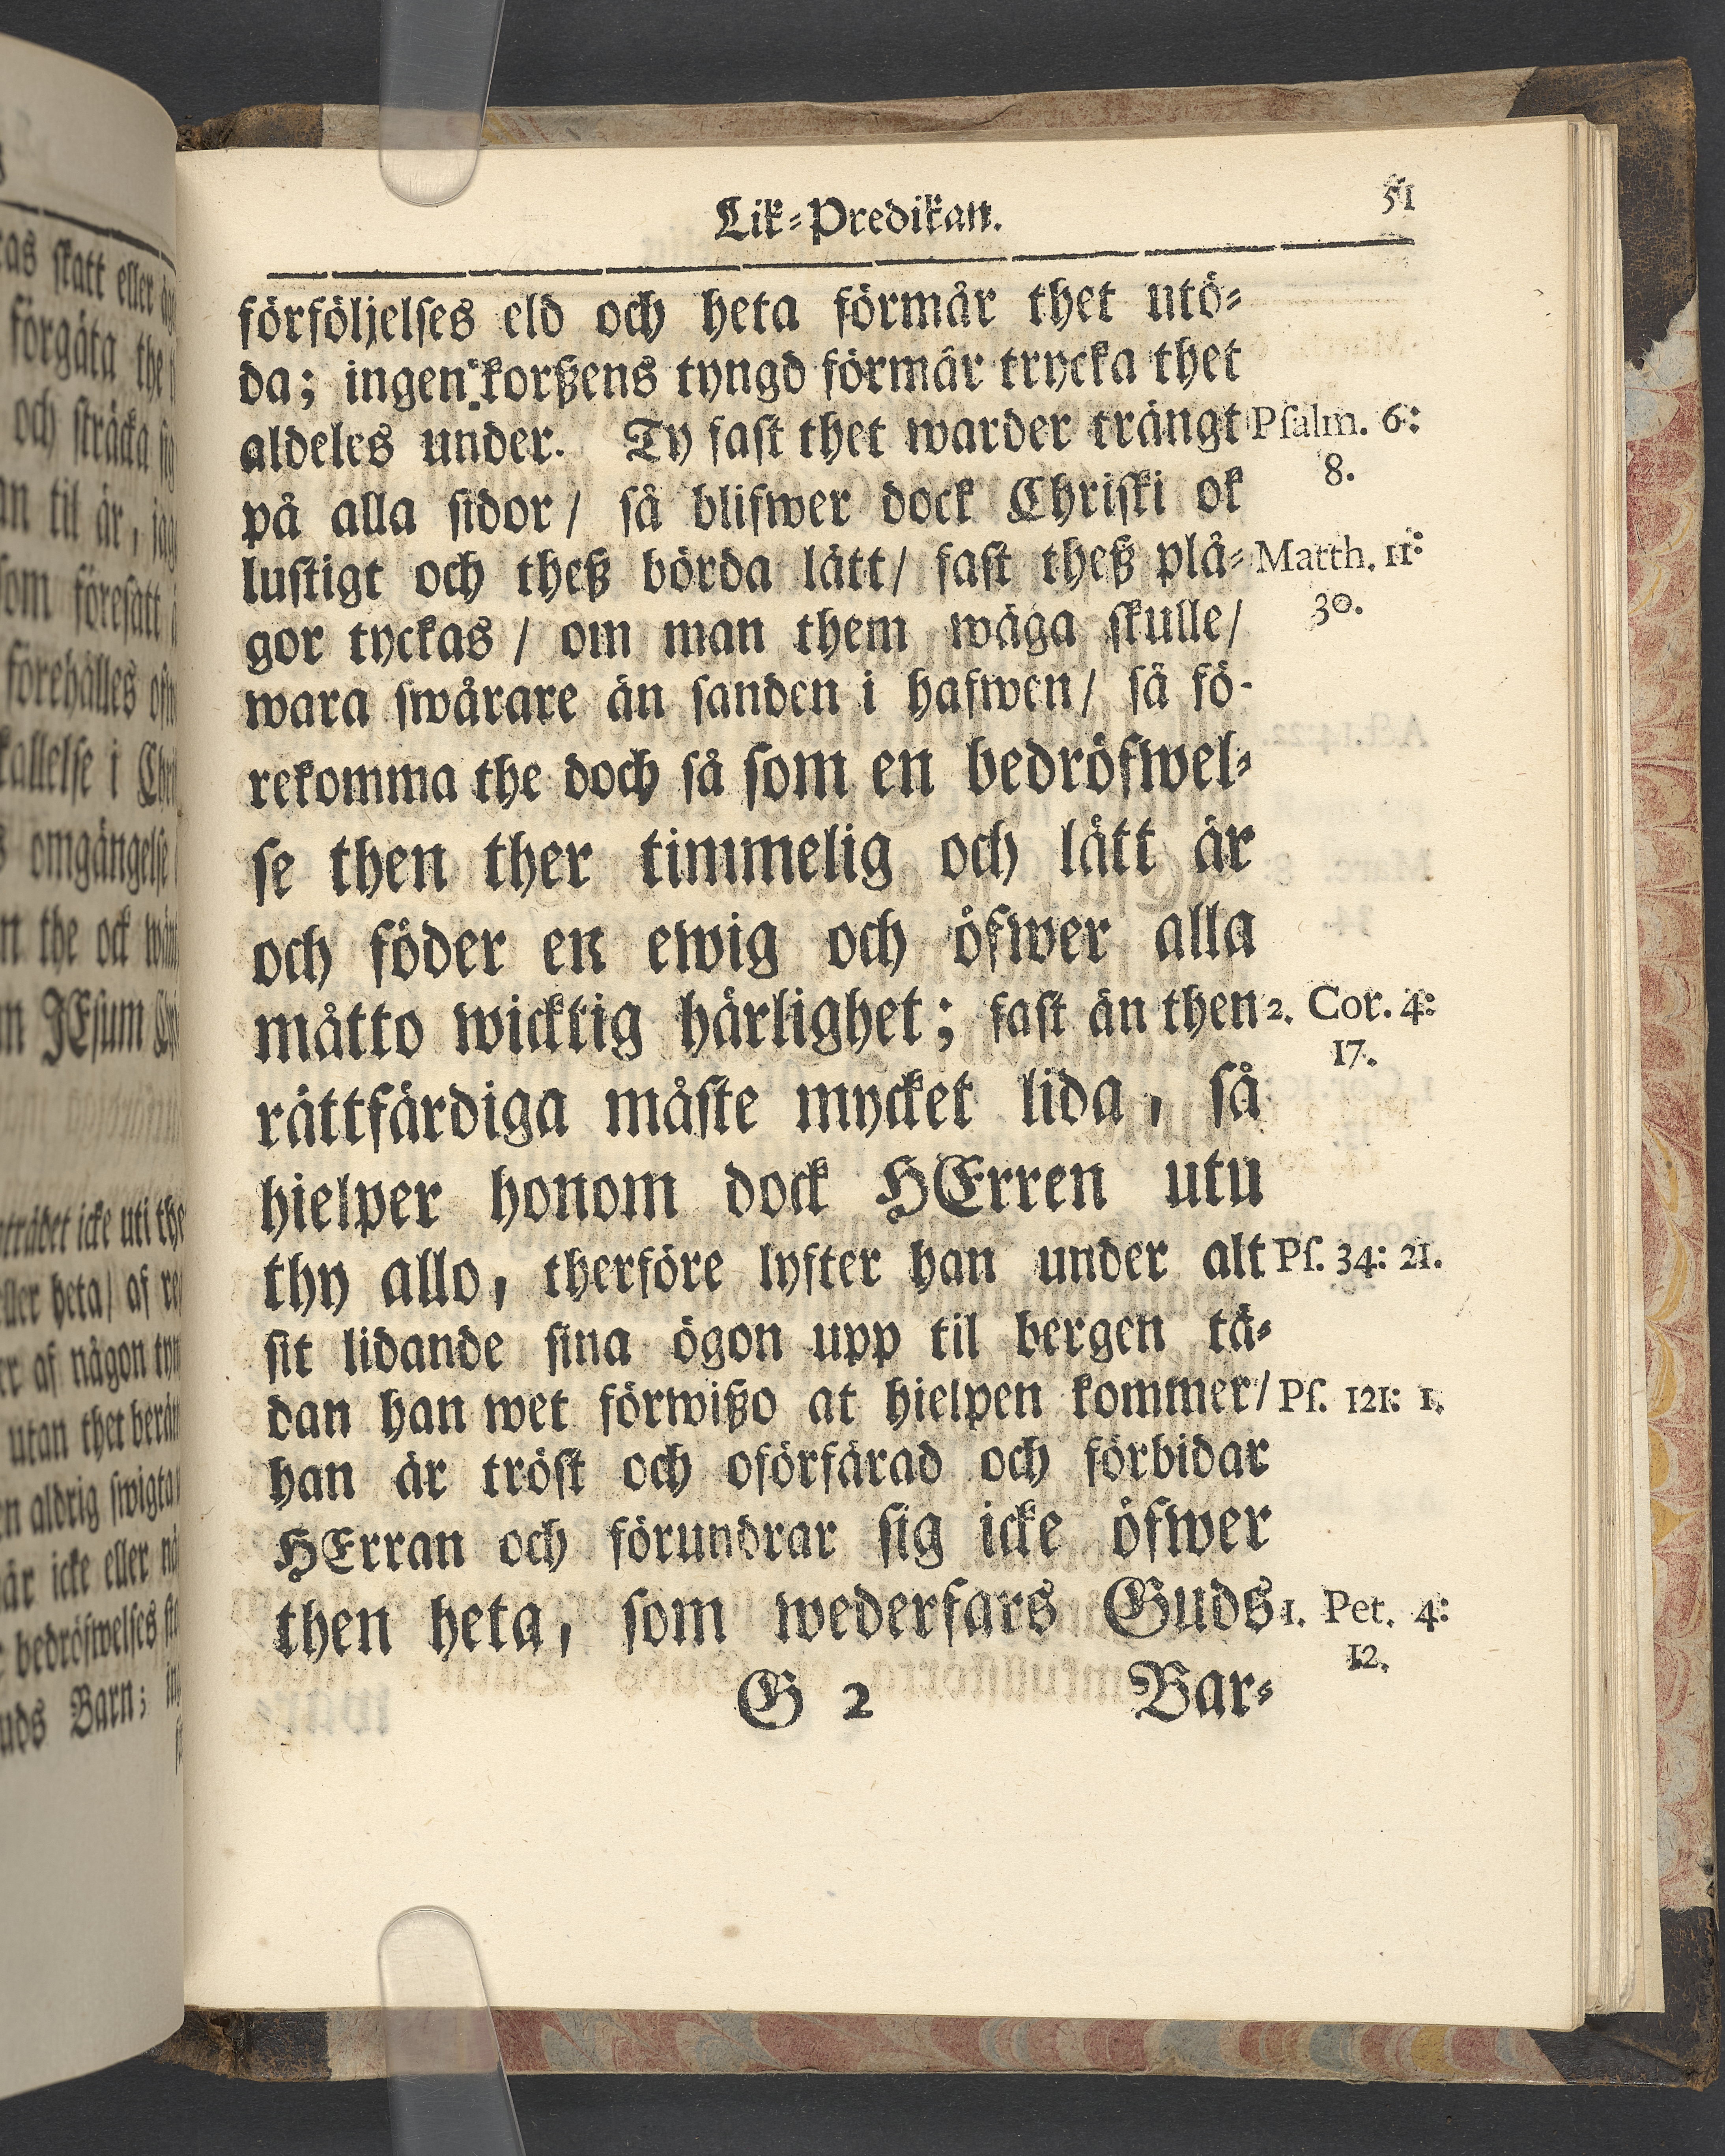 Lik-Predikan.
51
förföljelses eld och heta förmår thet utö-
da; ingen korßens tyngd förmår trycka thet
aldeles under. Ty fast thet warder trängt
Psalm. 6:
8.
på alla sidor / så blifwer dock Christi ok
lustigt och theß börda lätt / fast theß plå-
Matth. 11:
30.
gor tyckas / om man them wäga skulle /
wara swårare än sanden i hafwen / så fö-
rekomma the doch så som en bedröfwel-
se then ther timmelig och lätt är
och föder en ewig och öfwer alla
måtto wicktig härlighet; fast än then
2. Cor. 4:
17.
rättfärdiga måste mycket lida, så
hielper honom dock HErren utu
thy allo, therföre lyfter han under alt
Ps. 34: 21.
sit lidande sina ögon upp til bergen tä-
dan han wet förwißo at hielpen kommer /
Ps. 121: 1.
han är tröst och oförfärad och förbidar
HErran och förundrar sig icke öfwer
then heta, som wederfars Guds
1. Pet. 4:
12.
G 2
Bar-